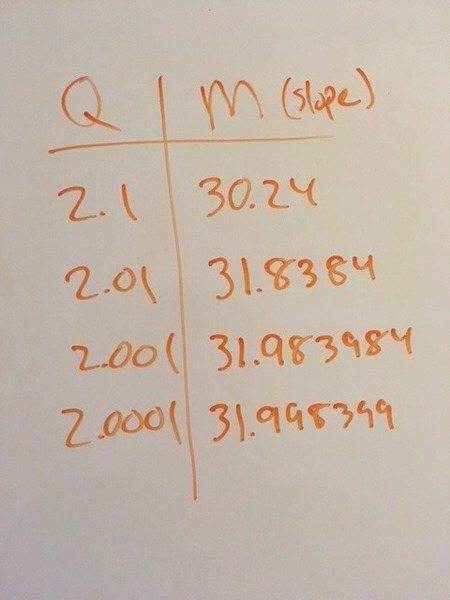 Q M (slope)
2.1 30.24
2.01 31.8384
2.001 31.983984
2.0001 31.998399